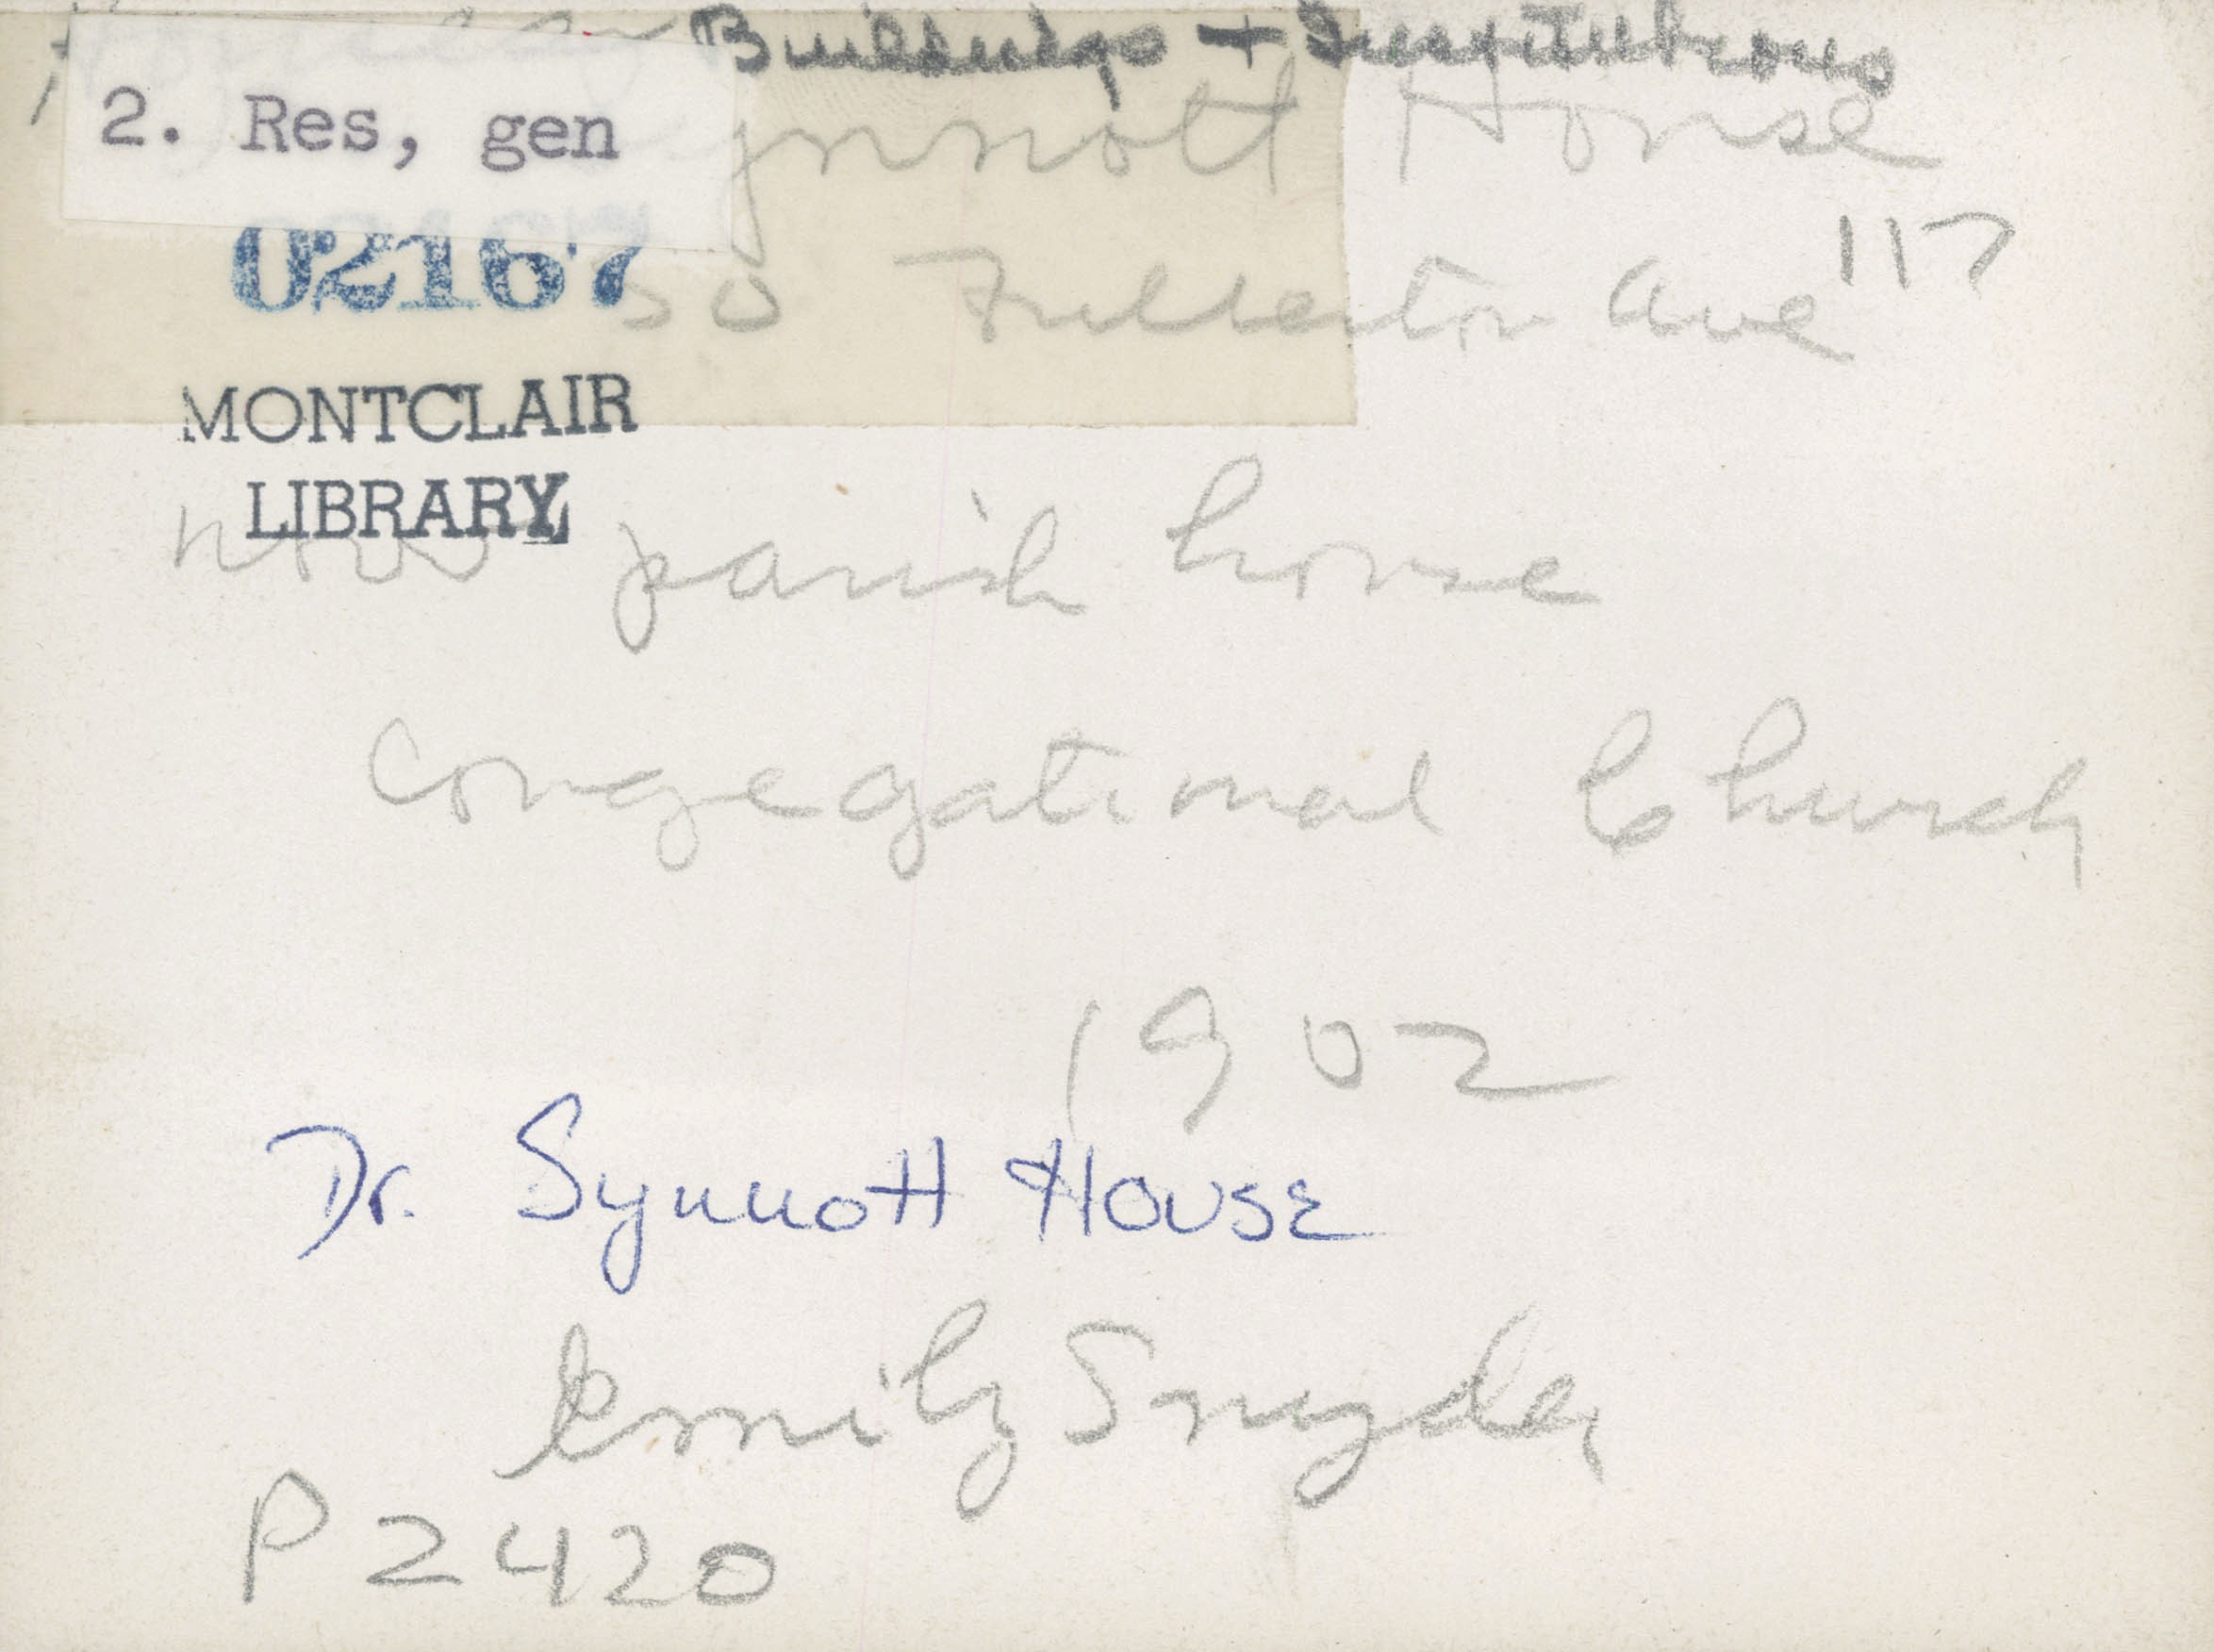 Buildings + Institutions
2. Res, gen
ynnott House
02167
117
so Fullerton Ave
MONTCLAIR
LIBRARY
now parish house
Congegational Church
1902
Dr. Synnott House
Emily Snyder
P2420